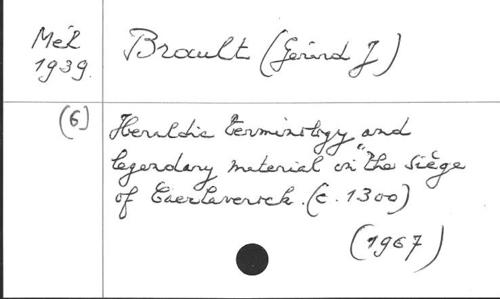 Mél Brault (Gérard J)
1939.
(6) Heraldic terminology and
legendary material in "the siège
of Caerlaverock. (c. 1300)
(1967)